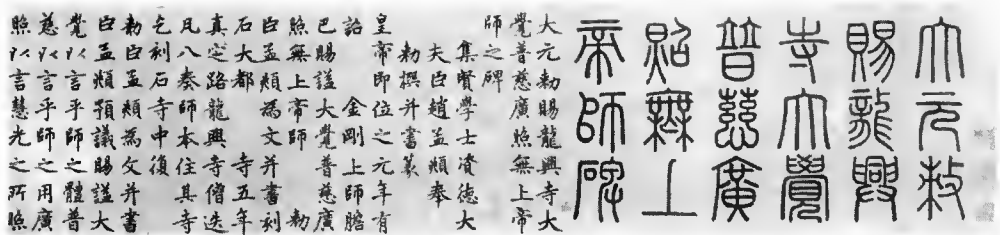 大元敕
賜龍興
寺大覺
普慈廣
照無上
帝師碑
大元勅賜龍興寺大
覺普慈廣照無上帝
師之碑
集賢學士資德大
夫臣趙孟頫奉
勅撰并書篆
皇帝即位之元年有
詔 金剛上師膽
巴賜謚大覺普慈廣
照無上帝師 勅
臣孟頫為文并書刻
石大都 寺五年
真定路龍興寺僧迭
凡八奏師本住其寺
乞刻石寺中復
勅臣孟頫為文并書
臣孟頫預議賜謚大
覺以言乎師之體普
慈以言乎師之用廣
照以言慧光之所照